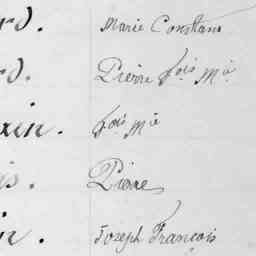 rd. Marie Constans
rd. Pierre fois Mie
ain. fois Mie
is. Pierre
in. Joseph François